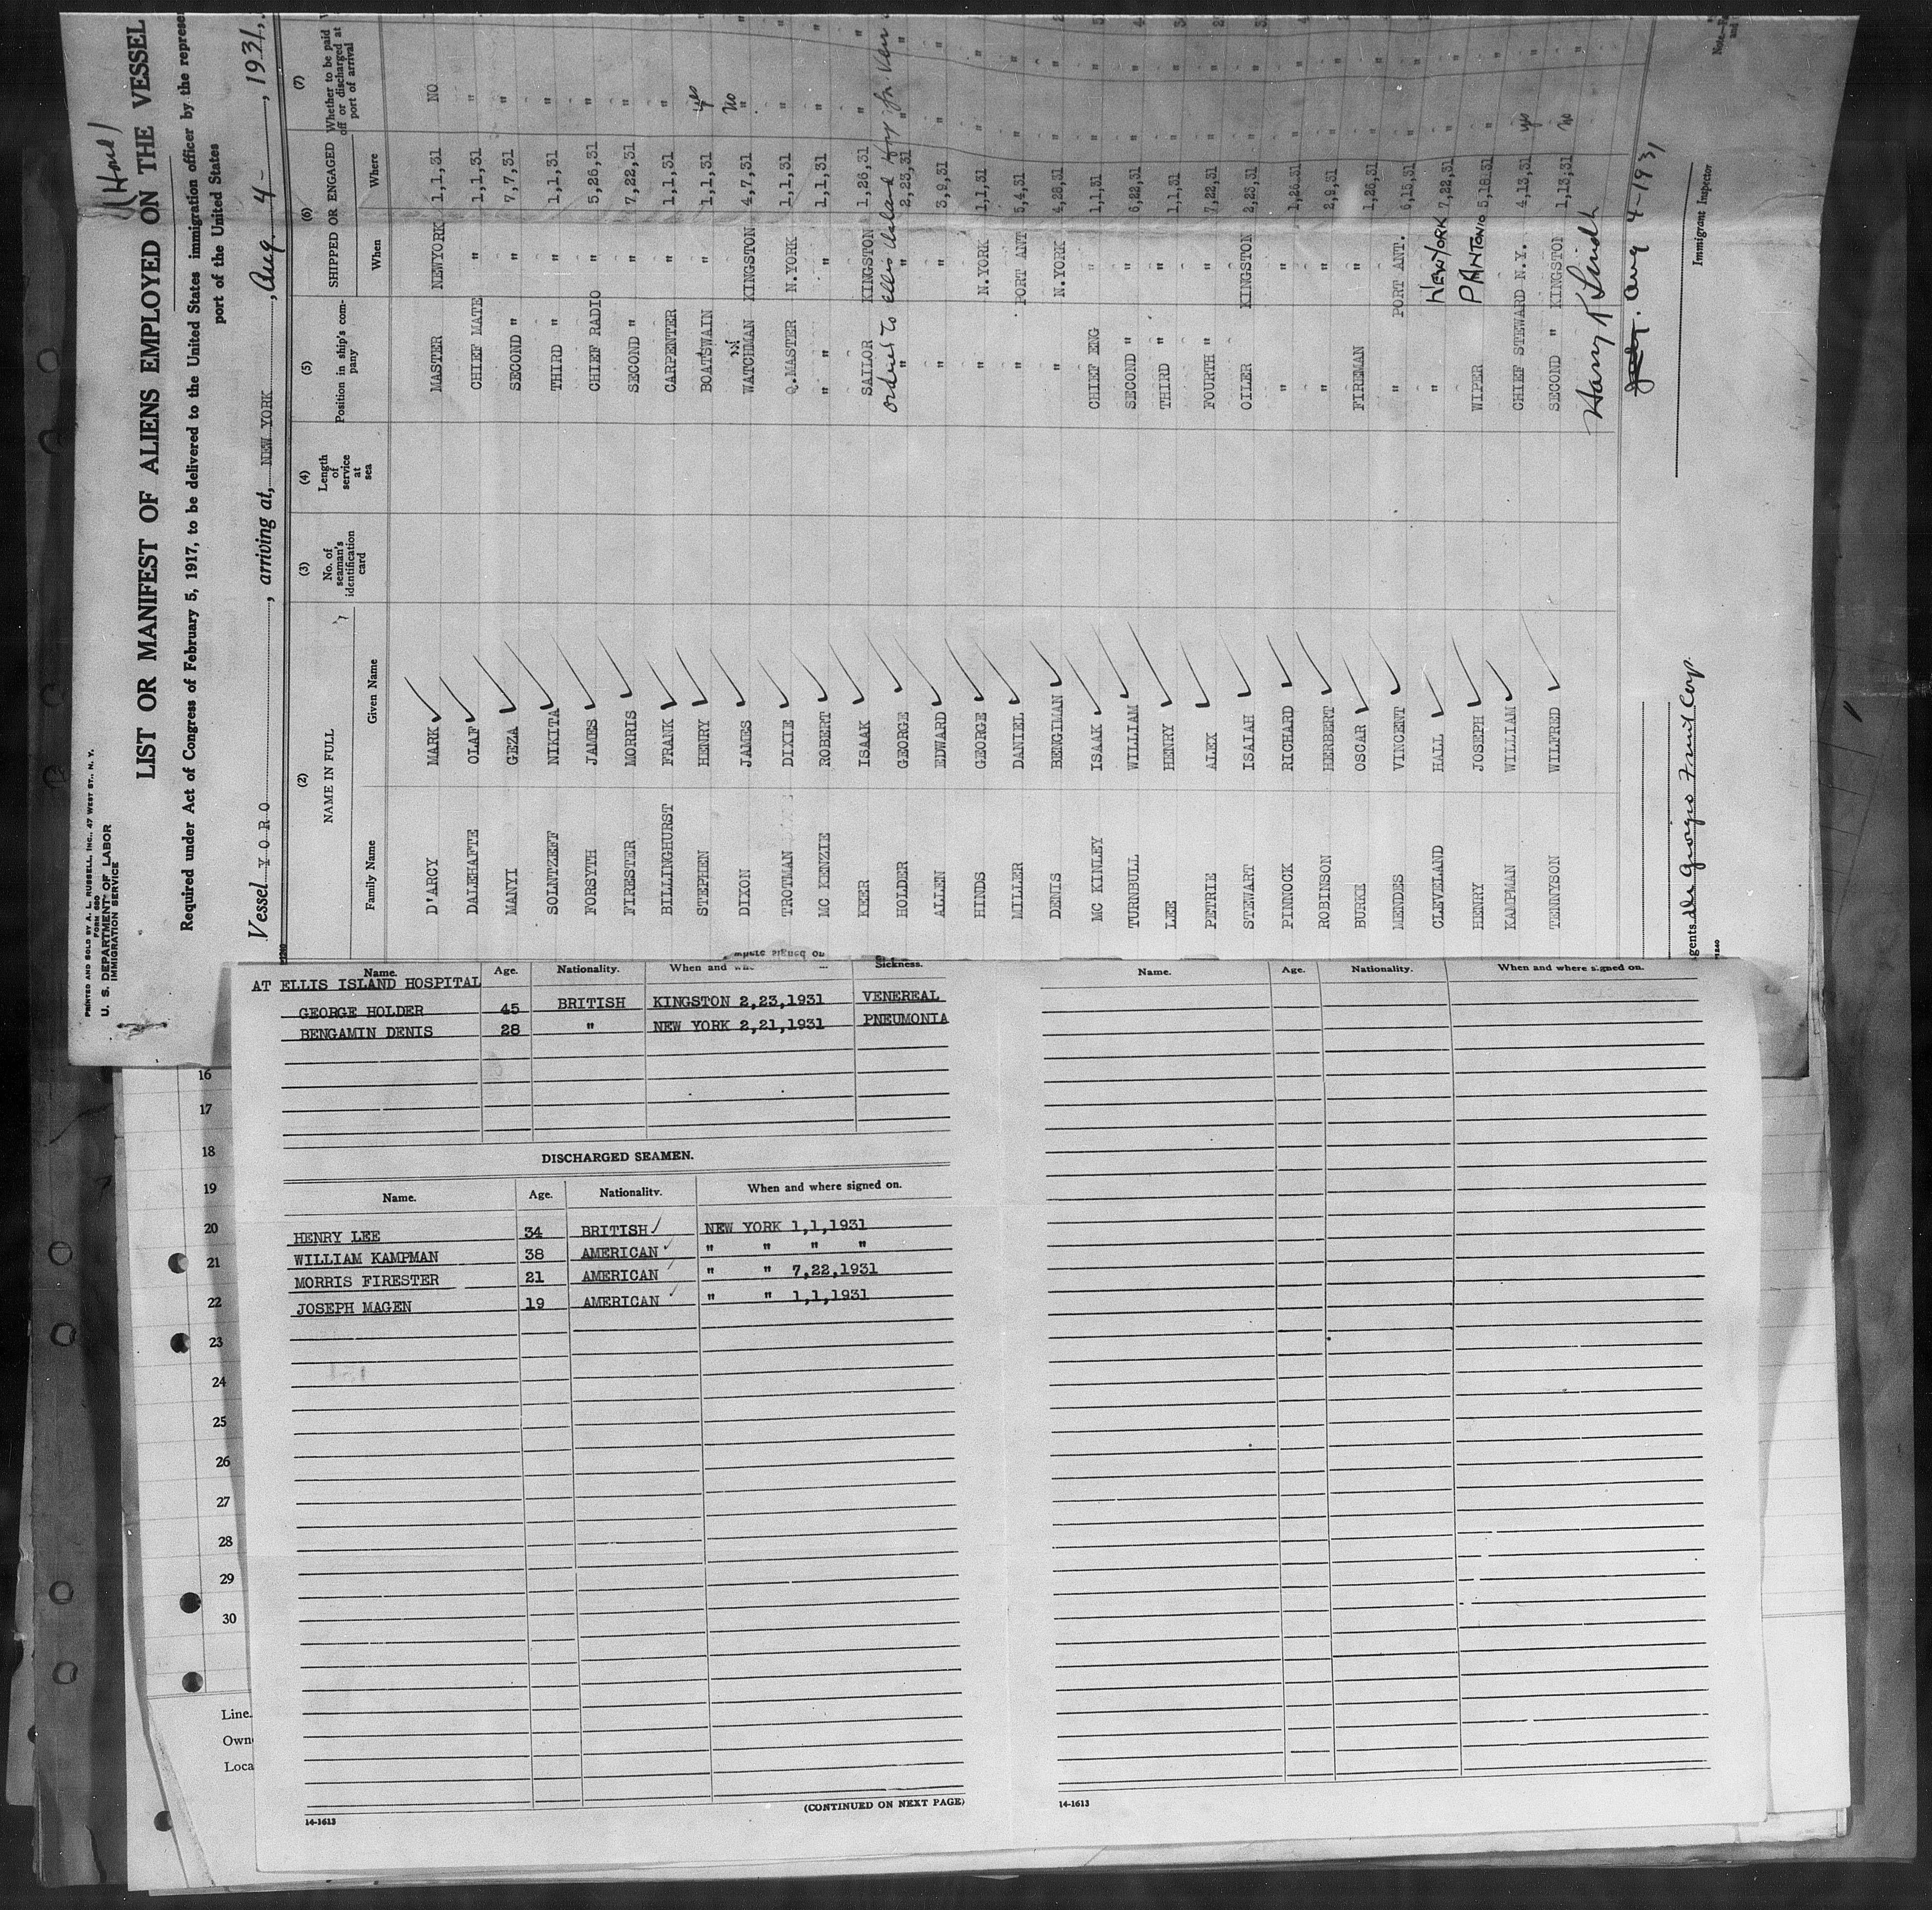 (Hond)
PRINTED AND SOLD BY A. L. RUSSELL, INC., 47 WEST ST., N. Y.
FORM 680
U. S. DEPARTMENT OF LABOR
IMMIGRATION SERVICE
LIST OR MANIFEST OF ALIENS EMPLOYED ON THE VESSEL
Required under Act of Congress of February 5, 1917, to be delivered to the United States immigration officer by the represe
port of the United States
Vessel YORO, arriving at, NEW YORK, Aug. 4-, 1931,
(2) (3) (4) (5) (6) (7)
NAME IN FULL No. of seaman's identification card Length of service at sea Position in ship's company SHIPPED OR ENGAGED Whether to be paid off or discharged at port of arrival
Family Name Given Name When Where
D'ARCY MARK MASTER NEWYORK 1,1,31 NO
DALEHAFTE OLAF CHIEF MATE " 1,1,31 "
MANYI GEZA SECOND " " 7,7,31 "
SOLNTZEFF NIKITA THIRD " " 1,1,31 "
FORSYTH JAMES CHIEF RADIO " 5,26,31 "
FIRESTER MORRIS SECOND " " 7,22,31 "
BILLINGHURST FRANK CARPENTER " 1,1,31 "
STEPHEN HENRY BOATSWAIN " 1,1,31 " yes
DIXON JAMES WATCHMAN KINGSTON 4,7,31 " No
TROTMAN DIXIE Q.MASTER N.YORK 1,1,31 "
MC KENZIE ROBERT " " " 1,1,31 "
KEER ISAAK SAILOR KINGSTON 1,26,31 "
ordered to Ellis Island Hosp for Ven
HOLDER GEORGE " " 2,23,31 "
ALLEN EDWARD " " 3,9,31 "
HINDS GEORGE " N.YORK 1,1,31 "
MILLER DANIEL " PORT ANT 5,4,31 "
DENIS BENGIMAN " N.YORK 4,28,31 "
MC KINLEY ISAAK CHIEF ENG " 1,1,31 "
TURNBULL WILLIAM SECOND " " 6,22,31 "
LEE HENRY THIRD " " 1,1,31 "
PETRIE ALEX FOURTH " " 7,22,31 "
STEWART ISAIAH OILER KINGSTON 2,23,31 "
PINNOCK RICHARD " " 1,26,31 "
ROBINSON HERBERT " " 2,9,31 "
BURKE OSCAR FIREMAN " 1,26,31 "
MENDES VINCENT " PORT ANT. 6,15,31 "
CLEVELAND HALL " NEW YORK 7,22,31 "
HENRY JOSEPH WIPER P ANTONIO 5,18,31 "
KAMPMAN WILLIAM CHIEF STEWARD N.Y. 4,13,31 yes
TENNYSON WILFRED SECOND " KINGSTON 1,13,31 no
Aug 4-1931
Immigrant Inspector
gents. Di Giorgio Fruit Corp.
Name. Age. Nationality. When and Sickness.
AT ELLIS ISLAND HOSPITAL
GEORGE HOLDER 45 BRITISH KINGSTON 2,23,1931 VENEREAL
BENGAMIN DENIS 28 " NEW YORK 2,21,1931 PNEUMONIA
DISCHARGED SEAMEN.
Name. Age. Nationality. When and where signed on.
HENRY LEE 34 BRITISH NEW YORK 1,1,1931
WILLIAM KAMPMAN 38 AMERICAN " " " "
MORRIS FIRESTER 21 AMERICAN " " 7,22,1931
JOSEPH MAGEN 19 AMERICAN " " 1,1,1931
(CONTINUED ON NEXT PAGE)
14-1613
Name. Age. Nationality. When and where signed on.
14-1613
16
17
18
19
20
21
22
23
24
25
26
27
28
29
30
Line.
Own
Loca